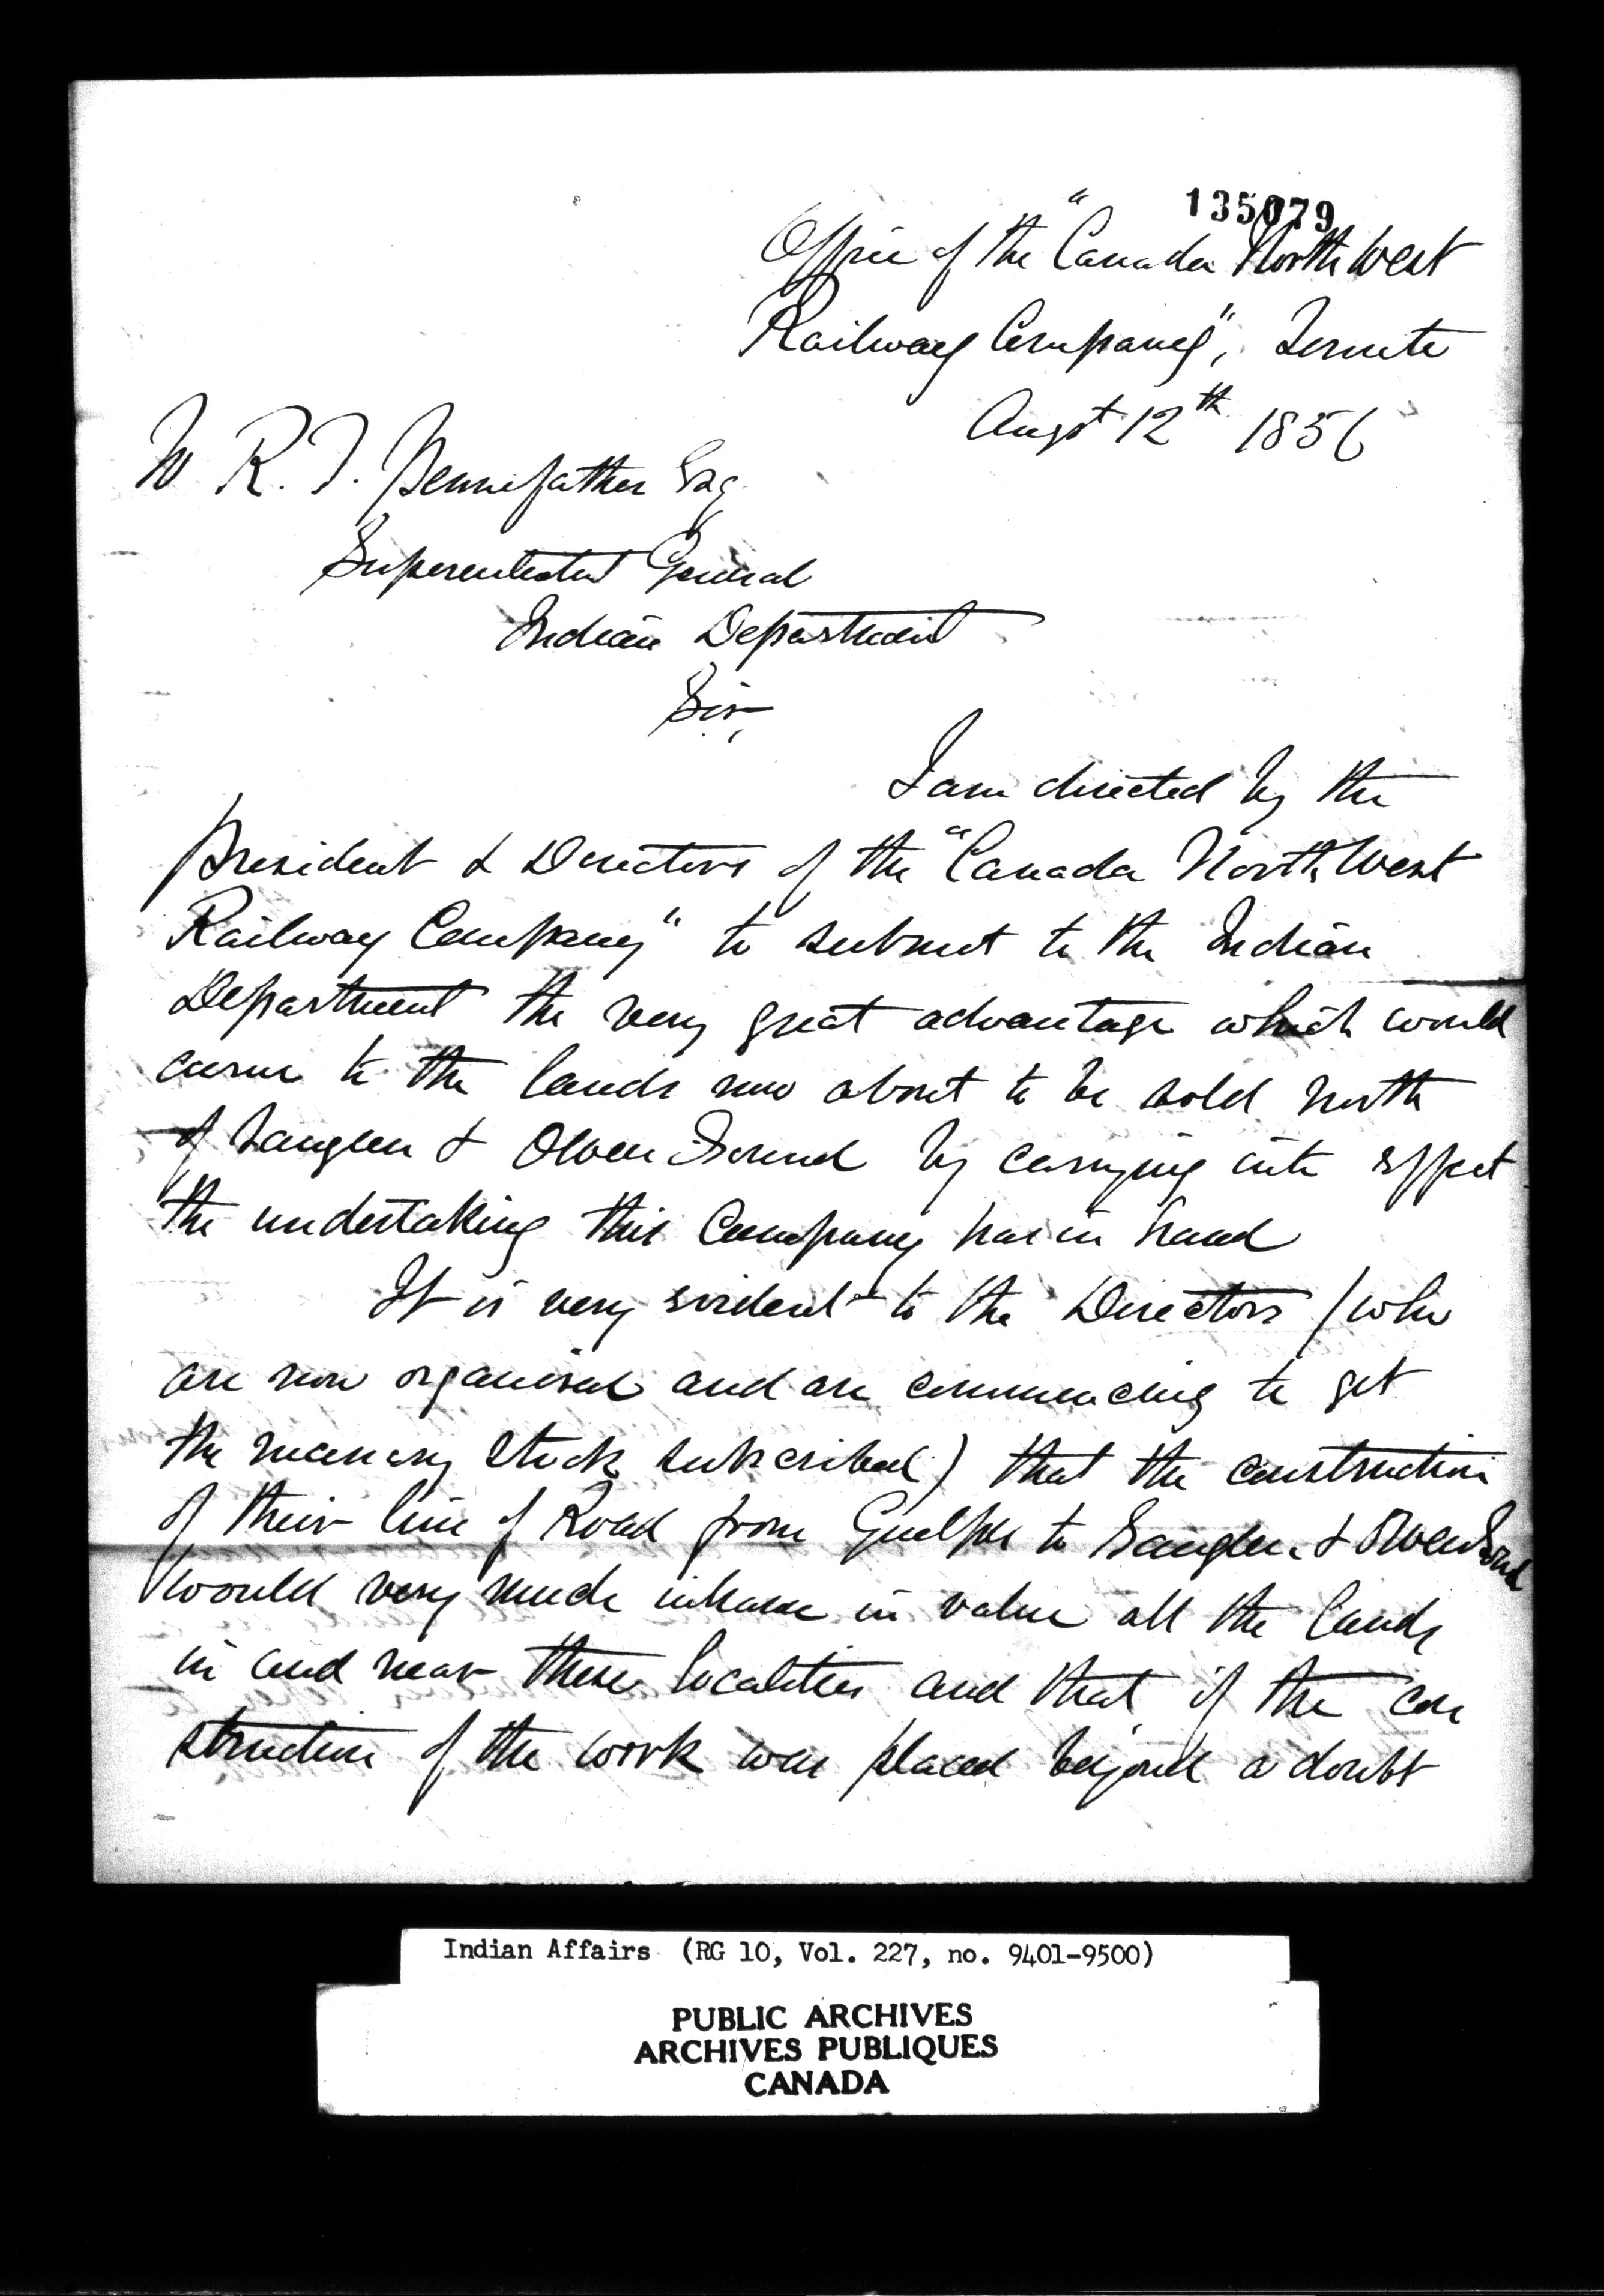 135079
Office of the "Canada North West
Railway Company", Toronto
Augst 12th 1856
R. T. Pennefather Esq
Superintendent General
Indian Department
Sir,
I am directed by the
President & Directors of the "Canada North West
Railway Company" to submit to the Indian
Department the very great advantage which would
accrue to the lands now about to be sold north
of Saugeen & Owen Sound by carrying into effect
the undertaking this Company has in hand
It is very evident to the Directors (who
are now organised and are commencing to get
the necessary Stock subscribed) that the construction
of their line of Road from Guelph to Saugeen & Owen Sound
would very much inhance in value all the lands
in and near these localities and that if the con
struction of the work was placed beyond a doubt
Indian Affairs (RG 10, Vol. 227, no. 9401-9500)
PUBLIC ARCHIVES
ARCHIVES PUBLIQUES
CANADA